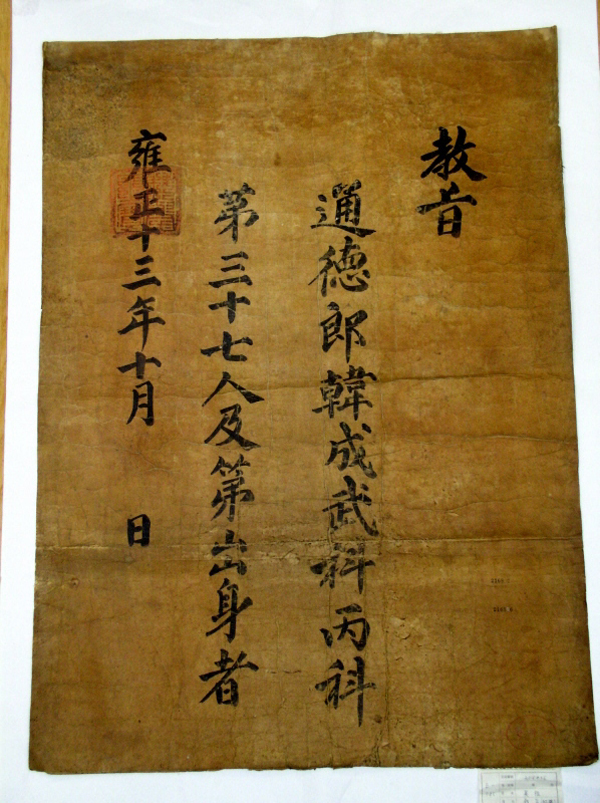 教旨
通德郎韓成武科丙科
苐三十七人及第出身者
雍正十三年十月 日